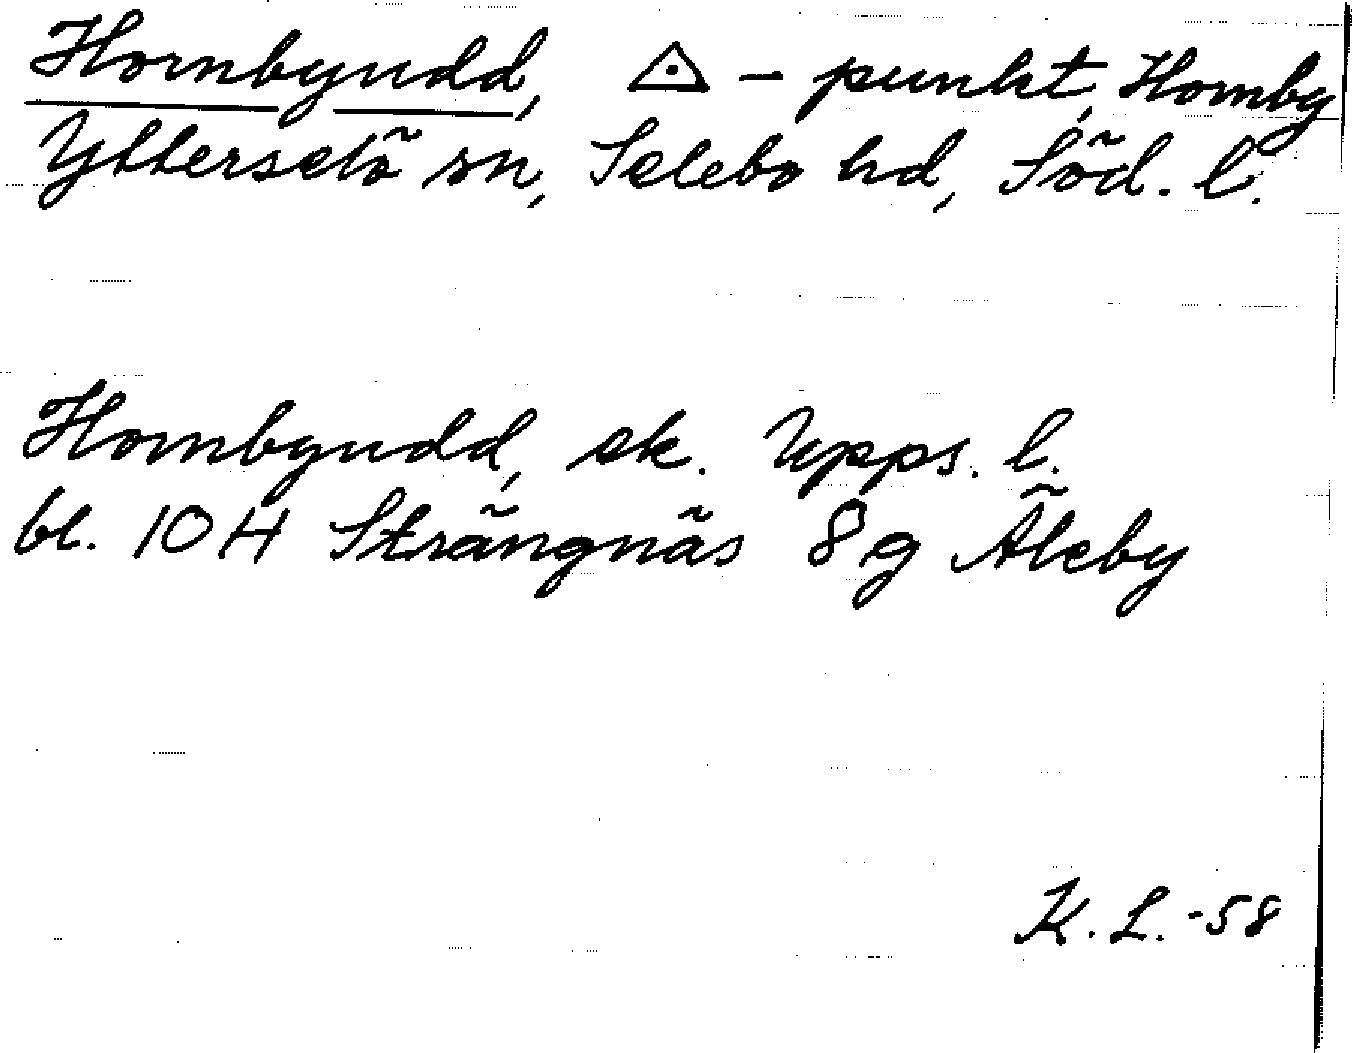 Hornbyudd, △ - punkt, Hornby
Ytterselö sn, Selebo hd, Söd. l.
Hornbyudd, ek. Upps. l.
bl. 10 H Strängnäs 8 g Åleby
K. L. -58